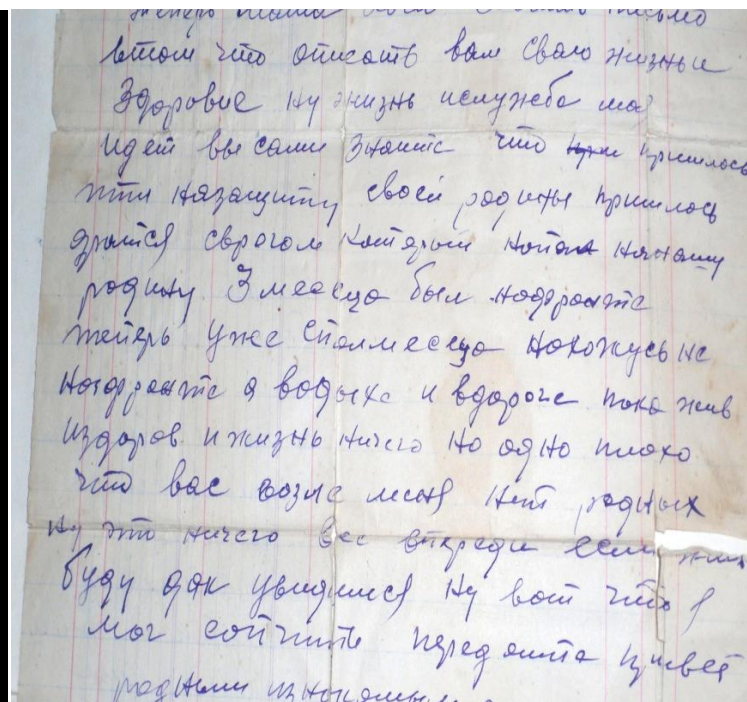 письмо
втом что описать вам сваю жизнь и
Здоровие ну жизнь ислужеба моя
идет вы сами знаите что пришлось
итти назащиту своей родины пришлось
дратся сврогом который напал нанашу
родину 3 месеца был нафронте
теперь уже сполмесеца нахожусь не
нафронте а водыхе и вдороге пока жив
издоров и жизнь ничего но одно плохо
что вас возле меня нет родных
ну это ничего все впереди если жив
буду дак увидимся ну вот что я
мог передаите привет
родным изнакомым